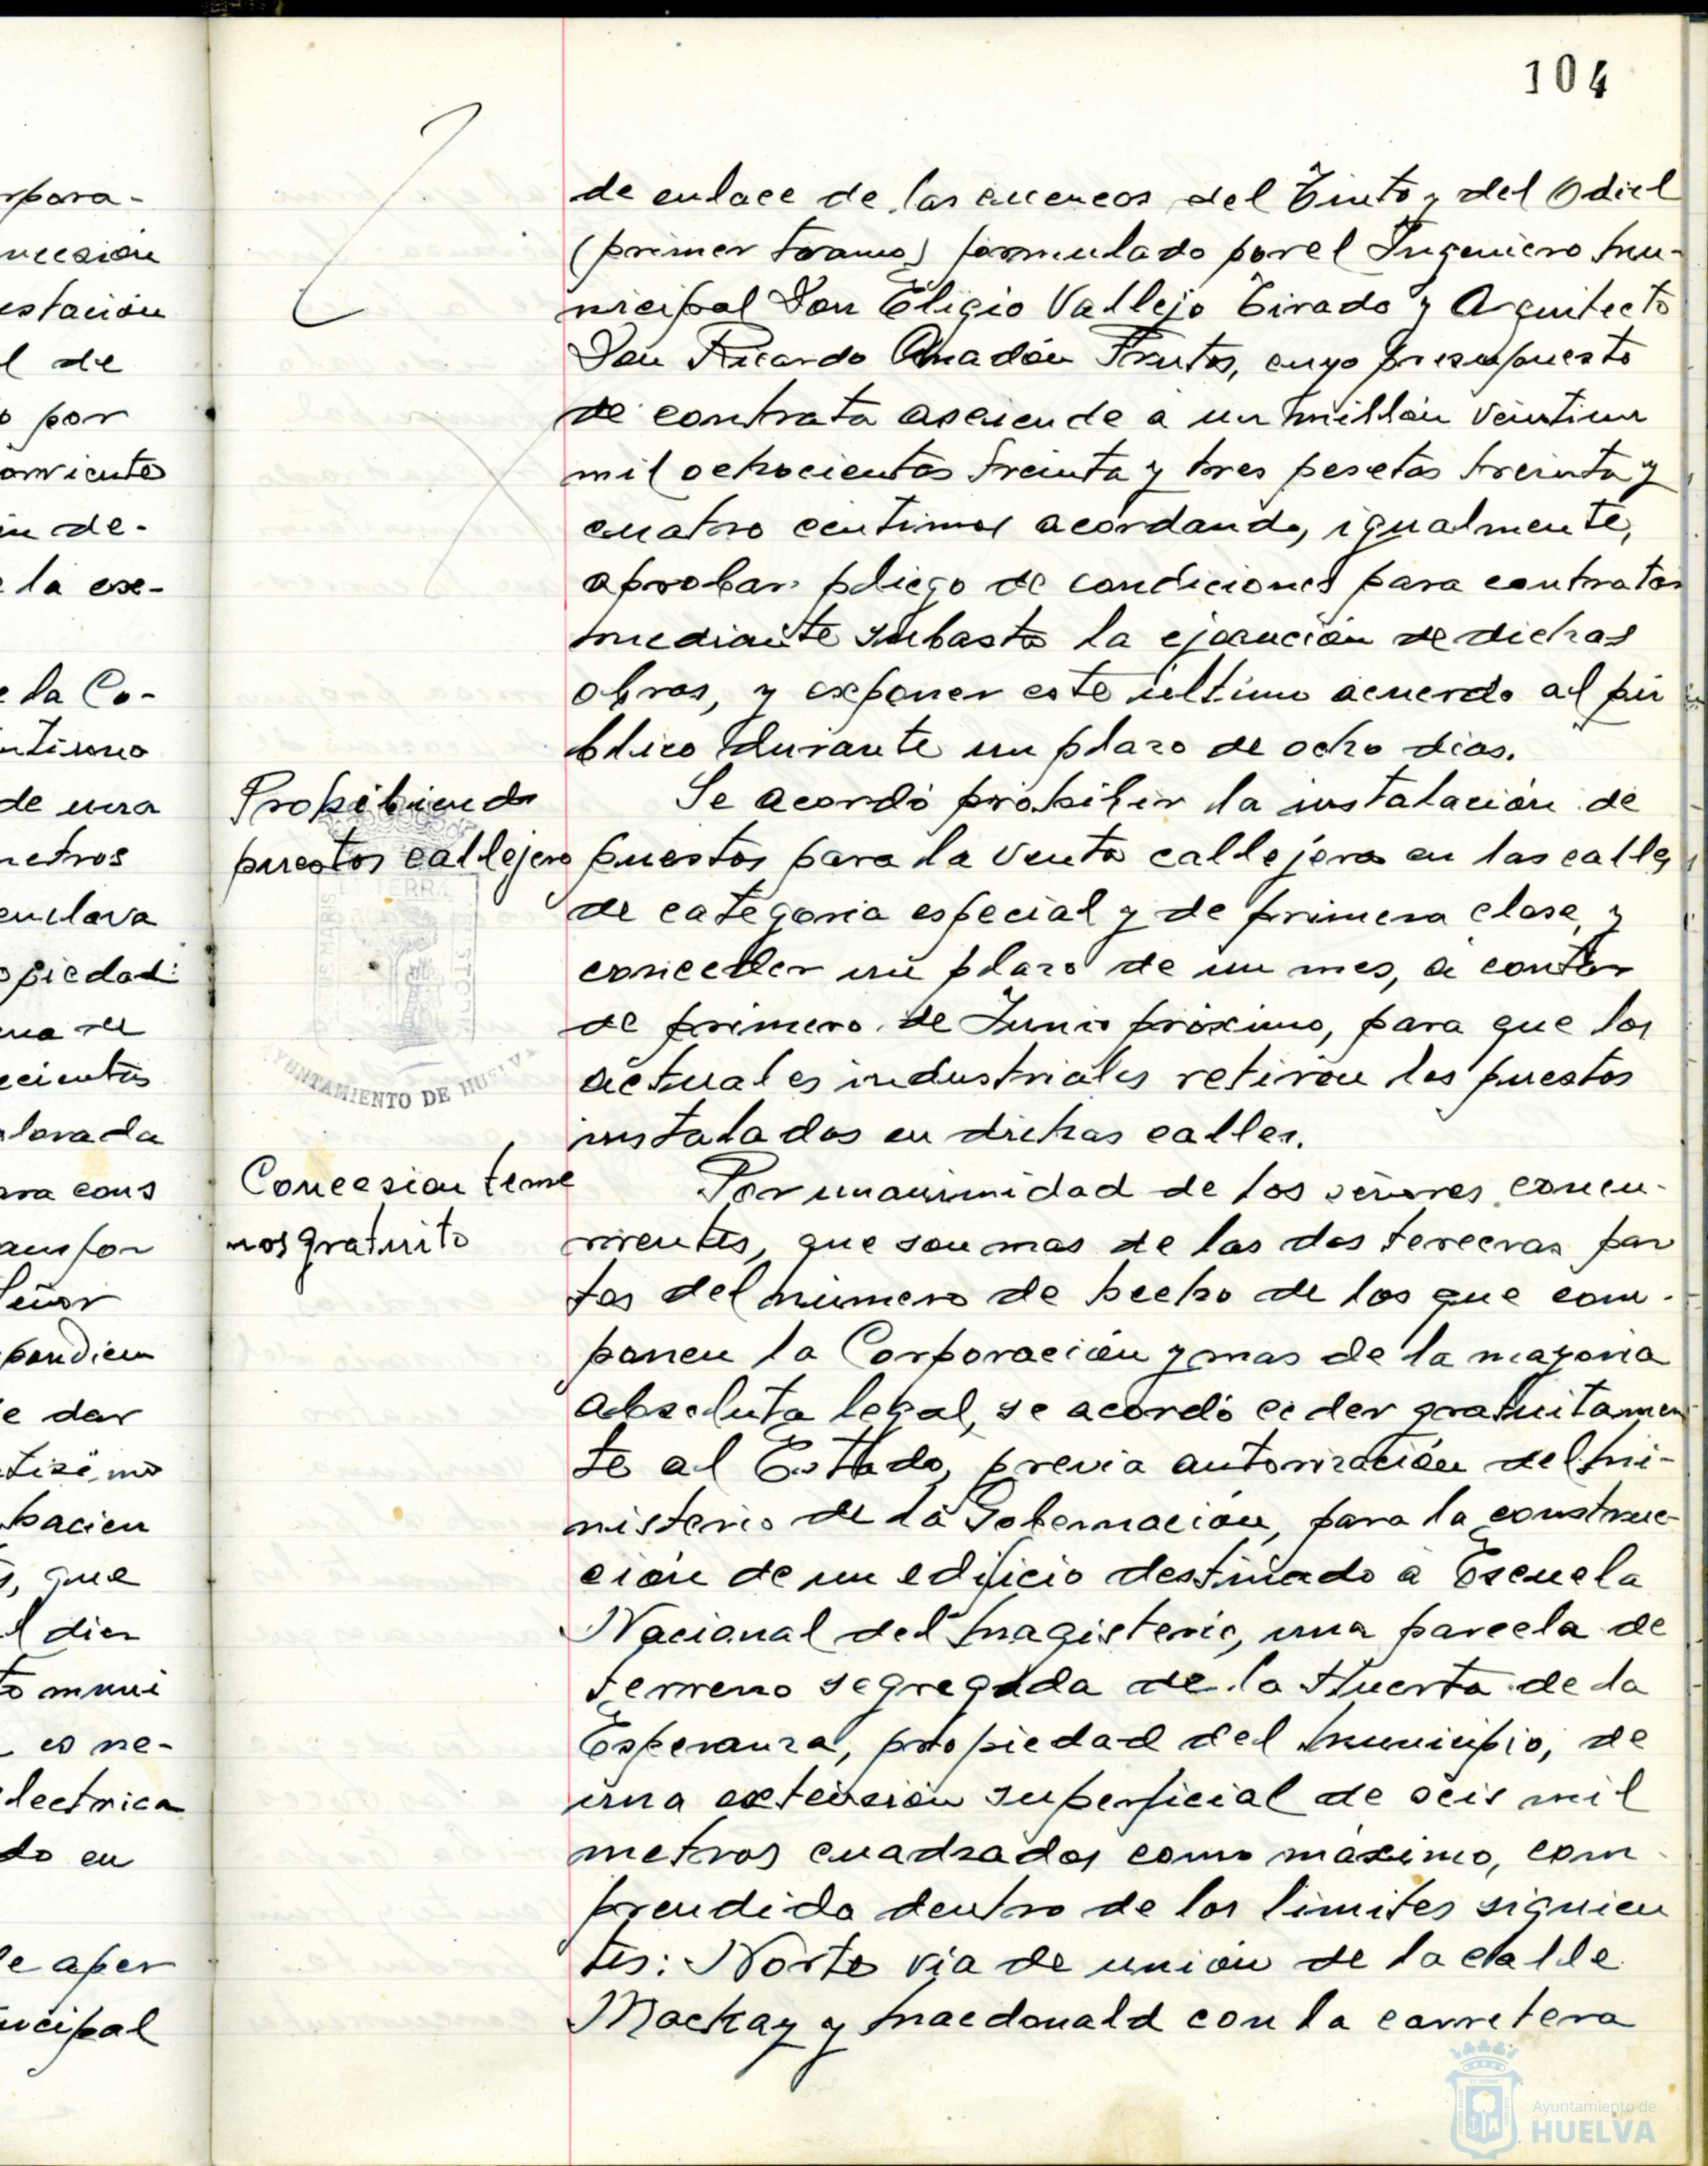 104
de enlace de las cuencas del Tinto y del Odiel
(primer tramo) formulado por el Ingeniero mu-
nicipal Don Eligio Vallejo Tirado y Arquitecto
Don Ricardo Anadón Frutos, cuyo presupuesto
de contrata asciende a un millón veintiun
mil ochocientas treinta y tres pesetas treinta y
cuatro centimos acordando, igualmente,
aprobar pliego de condiciones para contratar
mediante subasta la ejecución de dichas
obras, y exponer este último acuerdo al pú
blico durante un plazo de ocho dias.
Prohibiendo
puestos callejero
Se acordó prohibir la instalación de
puestos para la venta callejera en las calles
de categoria especial y de primera clase, y
conceder un plazo de un mes, a contar
de primero de Junio próximo, para que los
actuales industriales retiren los puestos
instalados en dichas calles.
AYUNTAMIENTO DE HUELVA
Concesion terre
nos gratuito
Por unanimidad de los señores concu-
rrentes, que son mas de las dos terceras par
tes del número de hecho de los que com-
ponen la Corporación y mas de la mayoria
absoluta legal, se acordó ceder gratuitamen
te al Estado, previa autorización del Mi-
nisterio de la Gobernación, para la construc-
ción de un edificio destinado a Escuela
Nacional del Magisterio, una parcela de
terreno segregada de la Huerta de la
Esperanza, propiedad del Municipio, de
una extensión superficial de seis mil
metros cuadrados como máximo, com-
prendida dentro de los limites siguien
tes: Norte via de unión de la calle
Mackay y Macdonald con la carretera
rpora-
ncesión
estación
l de
o por
in de-
e la eje-
e la Co-
de una
metros
enclava
opiedad:
ecientas
lorada
ara cons
Señor
pondien
e dar
hacien
s, que
l dia
to muni
es ne-
lectrica
do en
e aper
nicipal
Ayuntamiento de
HUELVA